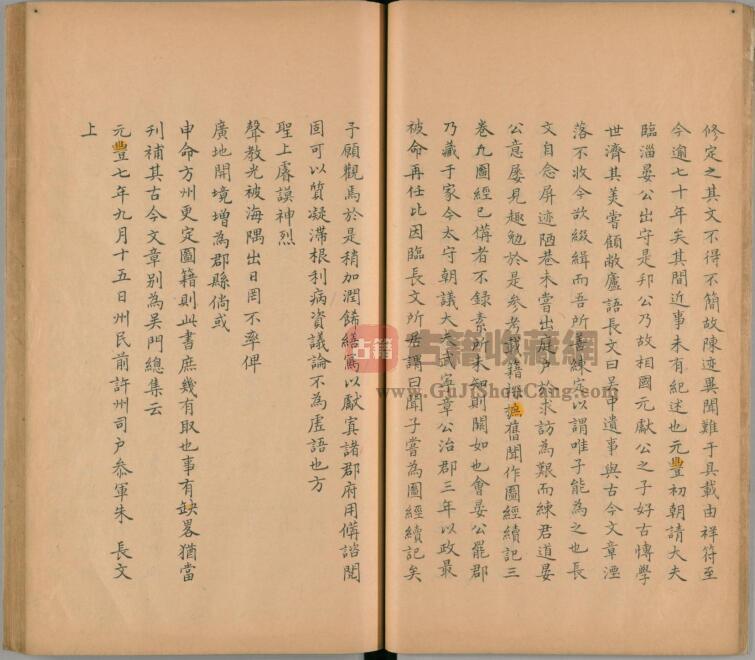 修定之其文不得不簡故陳迹異聞難于具載由祥符至
今逾七十年矣其間近事未有紀述也元豐初朝請大夫
臨淄晏公出守是邦公乃故相國元獻公之子好古博學
世濟其美嘗顧敝廬語長文曰吳中遺事與古今文章湮
落不收今欲綴緝而吾所善練定以謂唯子能為之也長
文自念屏迹陋巷未嘗出庭戶於求訪為艱而練君道晏
公意屢見趣勉於是參考載籍探摭舊聞作圖經續記三
卷凡圖經已備者不錄素所未知則闕如也會晏公罷郡
乃藏于家今太守朝議大夫武寧章公治郡三年以政最
被命再任比因臨長文所居謂曰聞子嘗為圖經續記矣
予願觀焉於是稍加潤飾繕寫以獻寘諸郡府用備諮閱
固可以質凝滯根利病資議論不為虛語也方
聖上睿謨神烈
聲教光被海隅出日罔不率俾
廣地開境增為郡縣倘或
申命方州更定圖籍則此書庶幾有取也事有缺畧猶當
刊補其古今文章別為吳門總集云
元豐七年九月十五日州民前許州司戶參軍朱 長文
上
古籍
古籍收藏網
www.GuJiShouCang.com